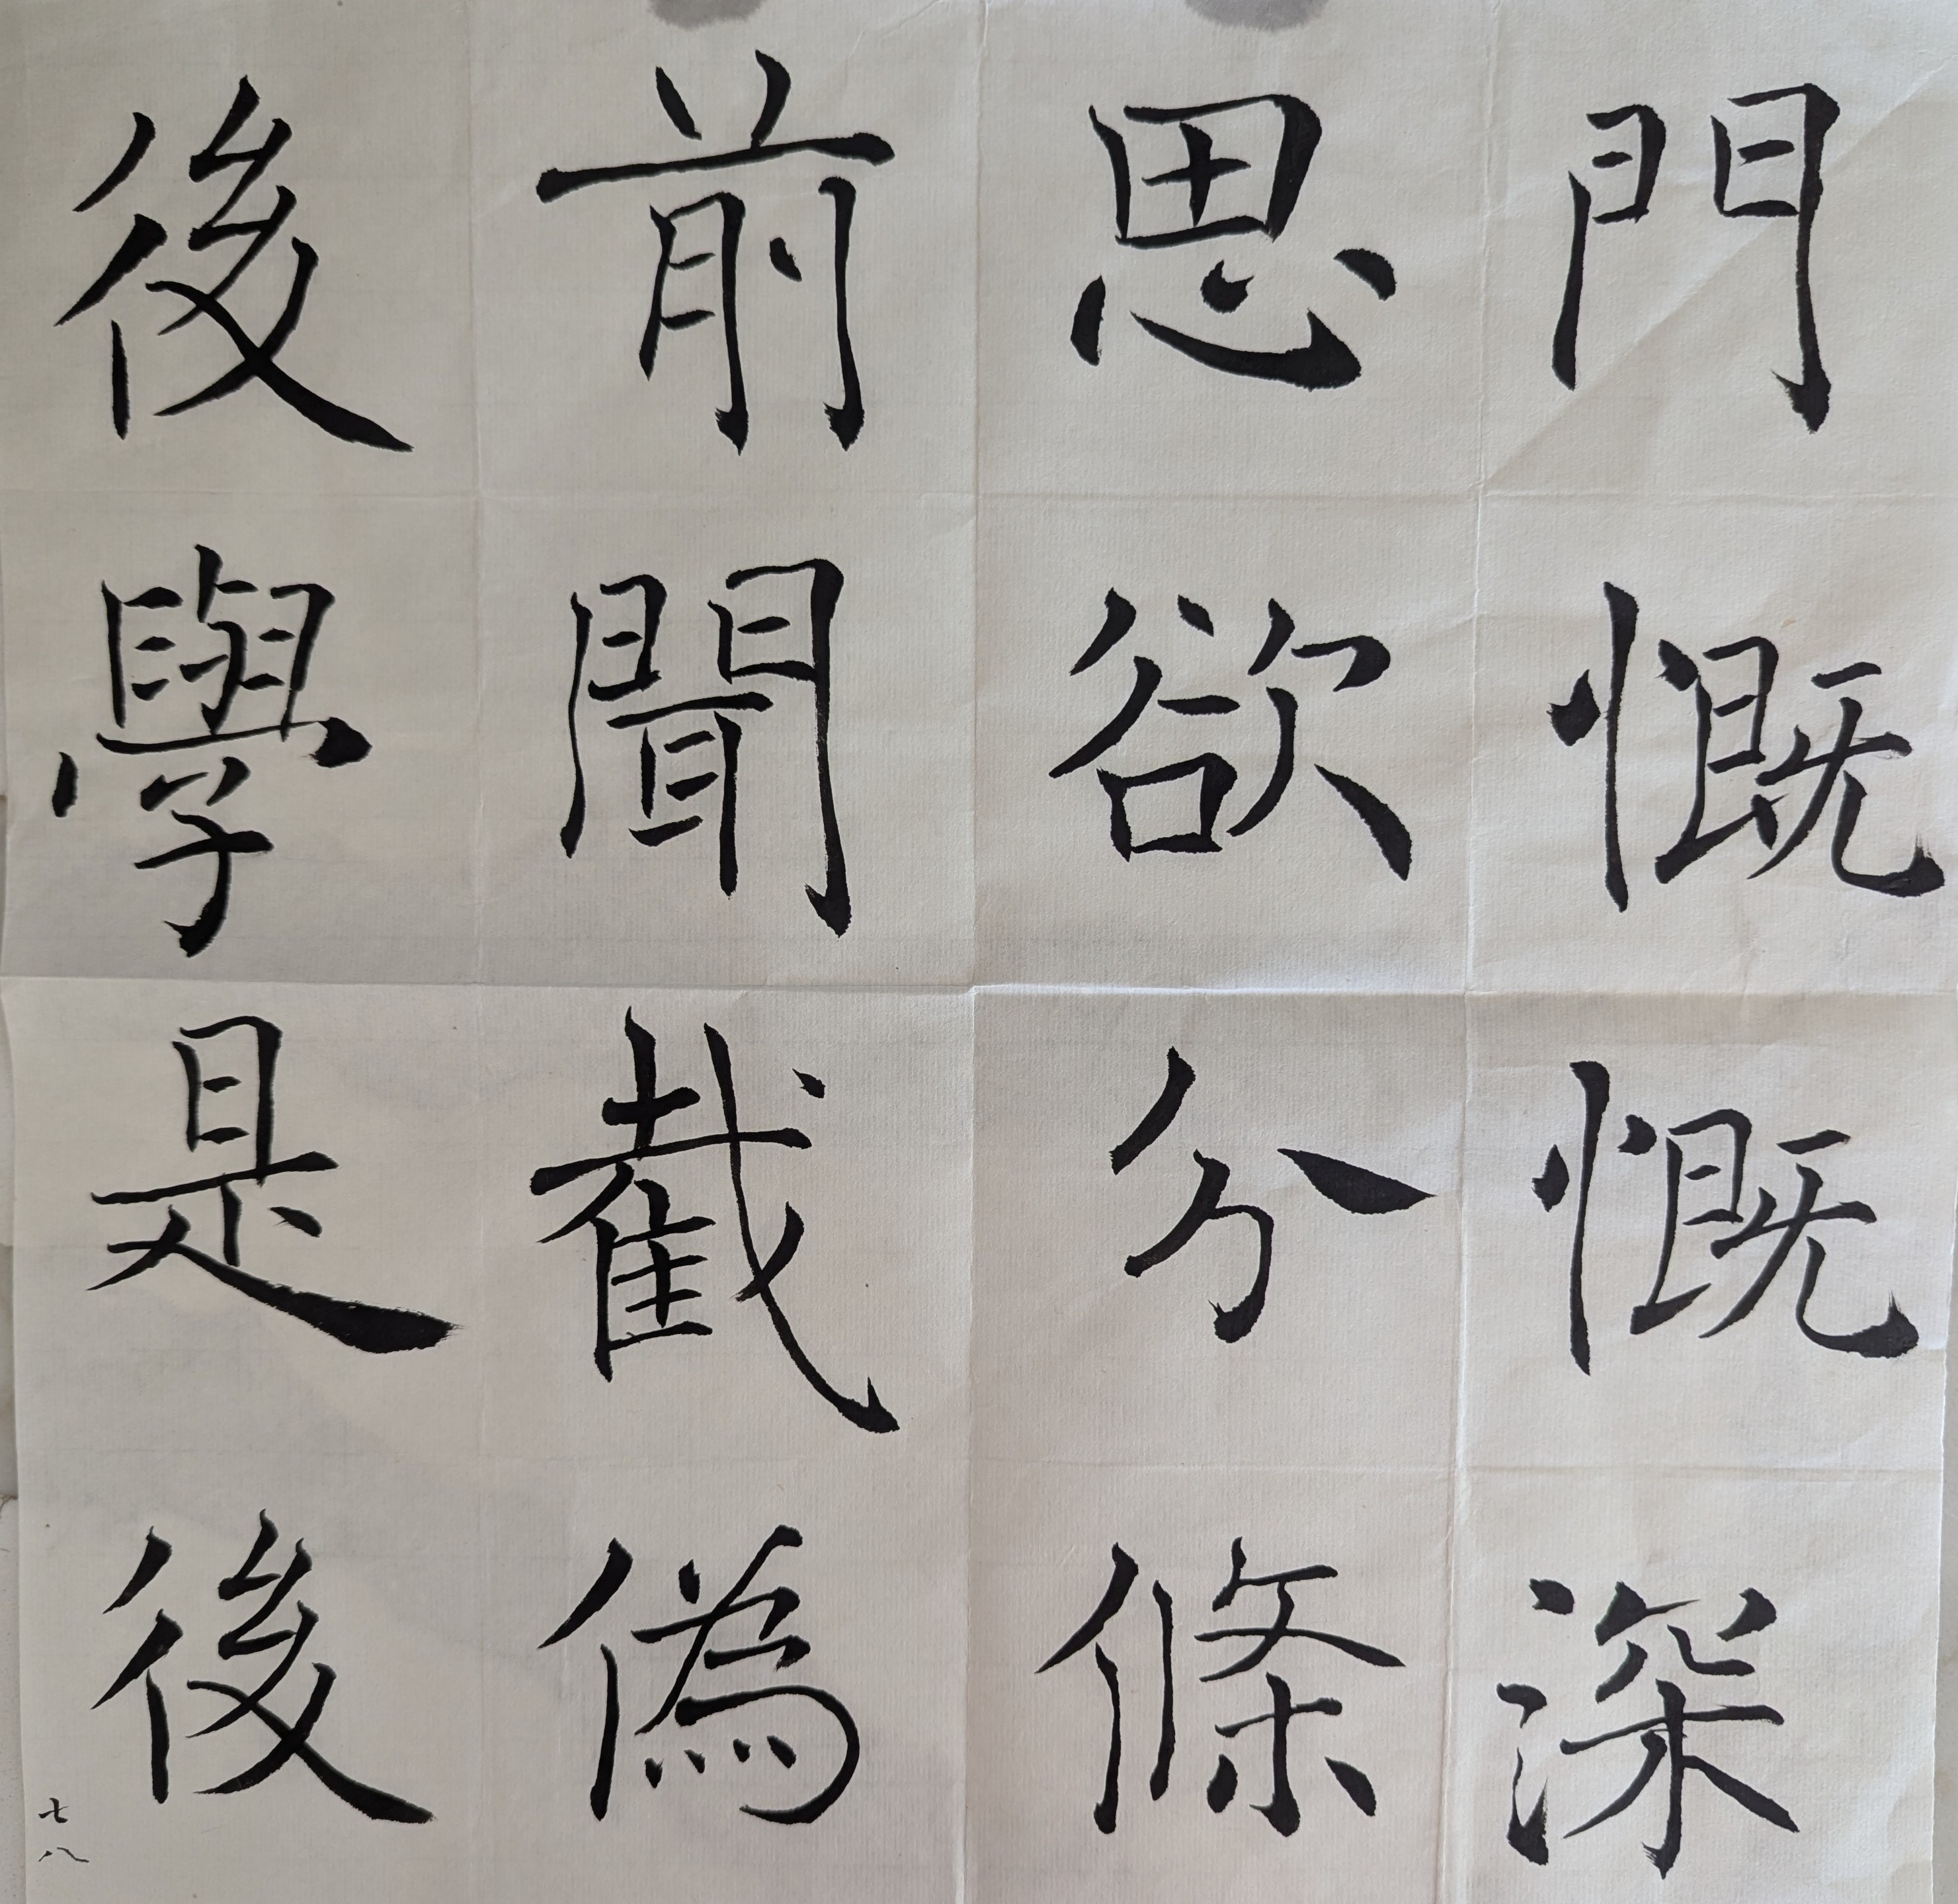 門慨慨深
思欲分條
前聞截偽
後學是後
七八